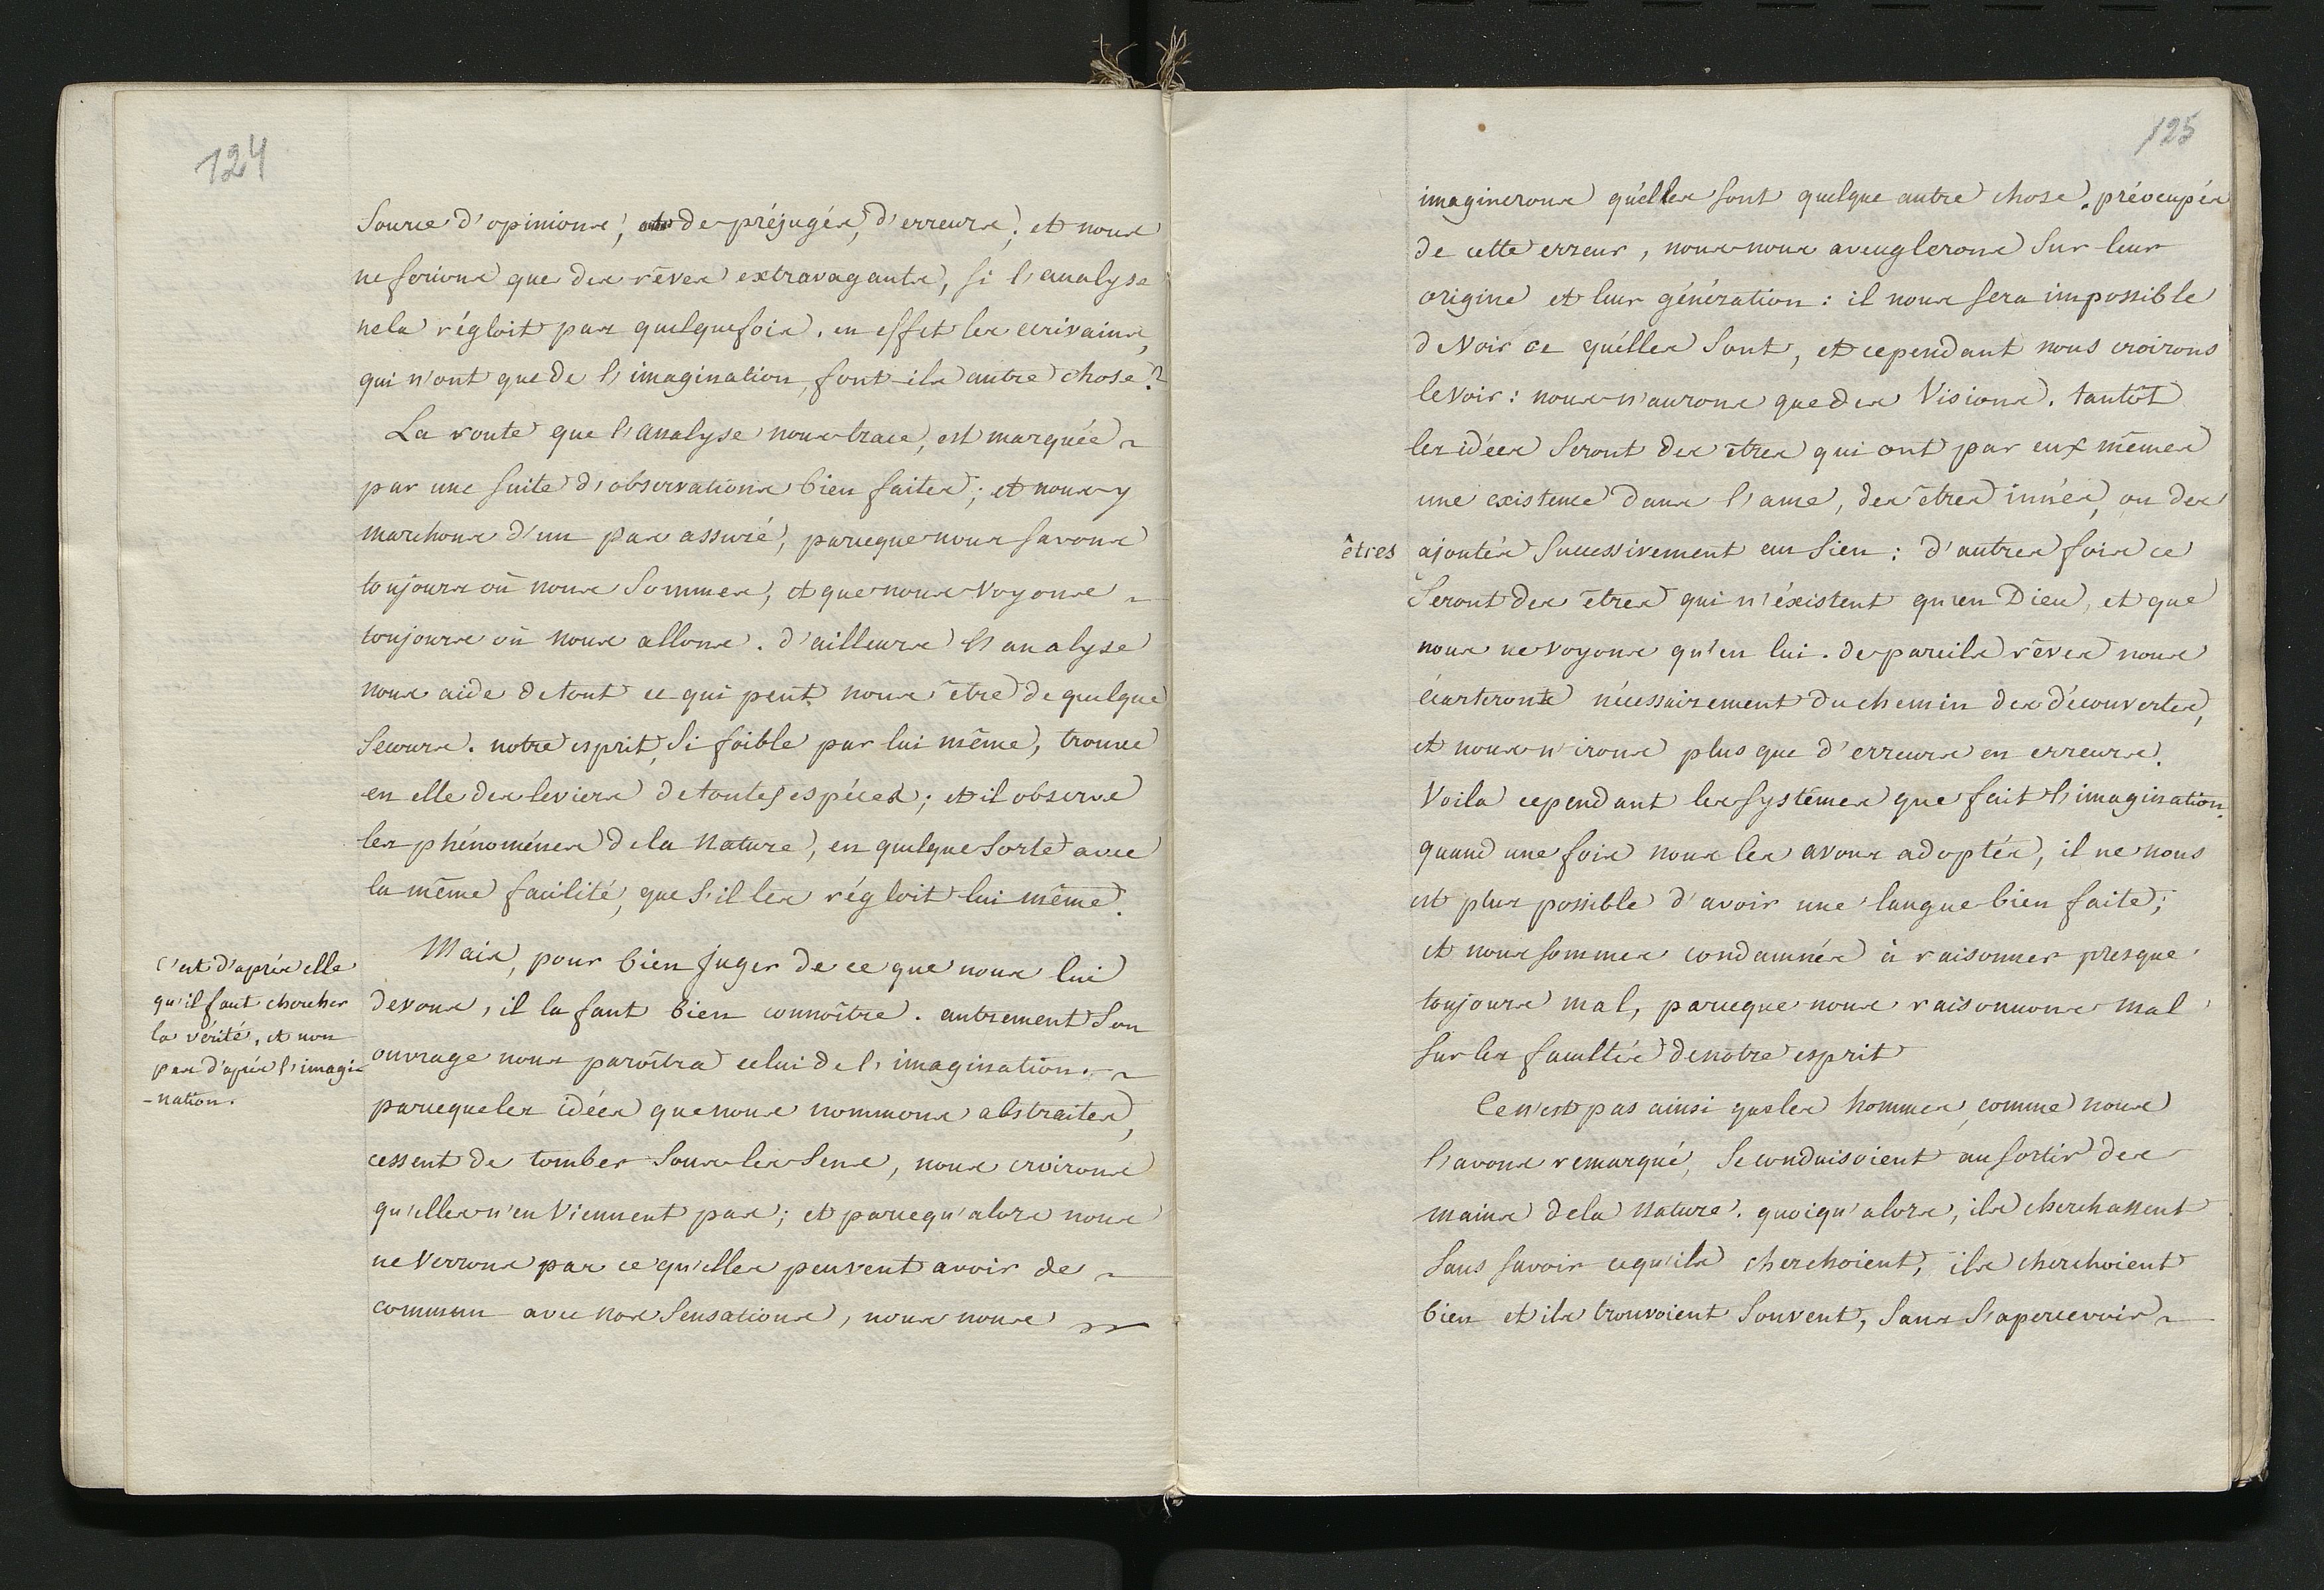 124
Source d'opinions, de préjugés, d'erreurs; et nous
ne ferions que des rêves extravagants, si l'analyse
ne la régloit pas quelquefois. en effet les écrivains,
qui n'ont que de l'imagination, font-ils autre chose?
La route que l'analyse nous trace, est marquée
par une suite d'observations bien faites; et nous y
marchons d'un pas assuré, parceque nous savons
toujours où nous sommes, et que nous voyons
toujours où nous allons. d'ailleurs l'analyse
nous aide de tout ce qui peut nous être de quelque
secours. notre esprit, si foible par lui même, trouve
en elle des leviers de toutes espéces; et il observe
les phénoménes de la Nature, en quelque sorte avec
la même facilité, que s'il les régloit lui même.
c'est d'après elle
qu'il faut chercher
la vérité, et non
pas d'après l'imagi-
-nation.
Mais, pour bien juger de ce que nous lui
devons, il la faut bien connoître. autrement son
ouvrage nous paroîtra celui de l'imagination.
parceque les idées que nous nommons abstraites,
cessent de tomber sous les sens, nous croirons
qu'elles n'en viennent pas; et parcequ'alors nous
ne verrons pas ce qu'elles peuvent avoir de
commun avec nos sensations, nous nous
125
imaginerons qu'elles sont quelque autre chose. préocupés
de cette erreur, nous nous aveuglerons sur leur
origine et leur génération: il nous sera impossible
de voir ce qu'élles sont, et cependant nous croirons
le voir: nous n'aurons que des visions. tantôt
les idées seront des êtres qui ont par eux mêmes
une existence dans l'ame, des êtres innés, ou des
êtres ajoutés successivement au sien: d'autres fois ce
seront des êtres qui n'éxistent qu'en Dieu, et que
nous ne voyons qu'en lui. de pareils rêves nous
écarteront nécessairement du chemin des découvertes,
et nous n'irons plus que d'erreurs en erreurs.
Voila cependant les systêmes que fait l'imagination.
quand une fois nous les avons adoptés, il ne nous
est plus possible d'avoir une langue bien faite;
et nous sommes condamnés à raisonner presque
toujours mal, parceque nous raisonnons mal
sur les facultés de notre esprit
Ce n'est pas ainsi que les hommes, comme nous
l'avons remarqué, se conduisoient au sortir des
mains de la Nature. quoiqu'alors, ils cherchassent
sans savoir ce qu'ils cherchoient, ils cherchoient
bien et ils trouvoient souvent, sans s'apercevoir